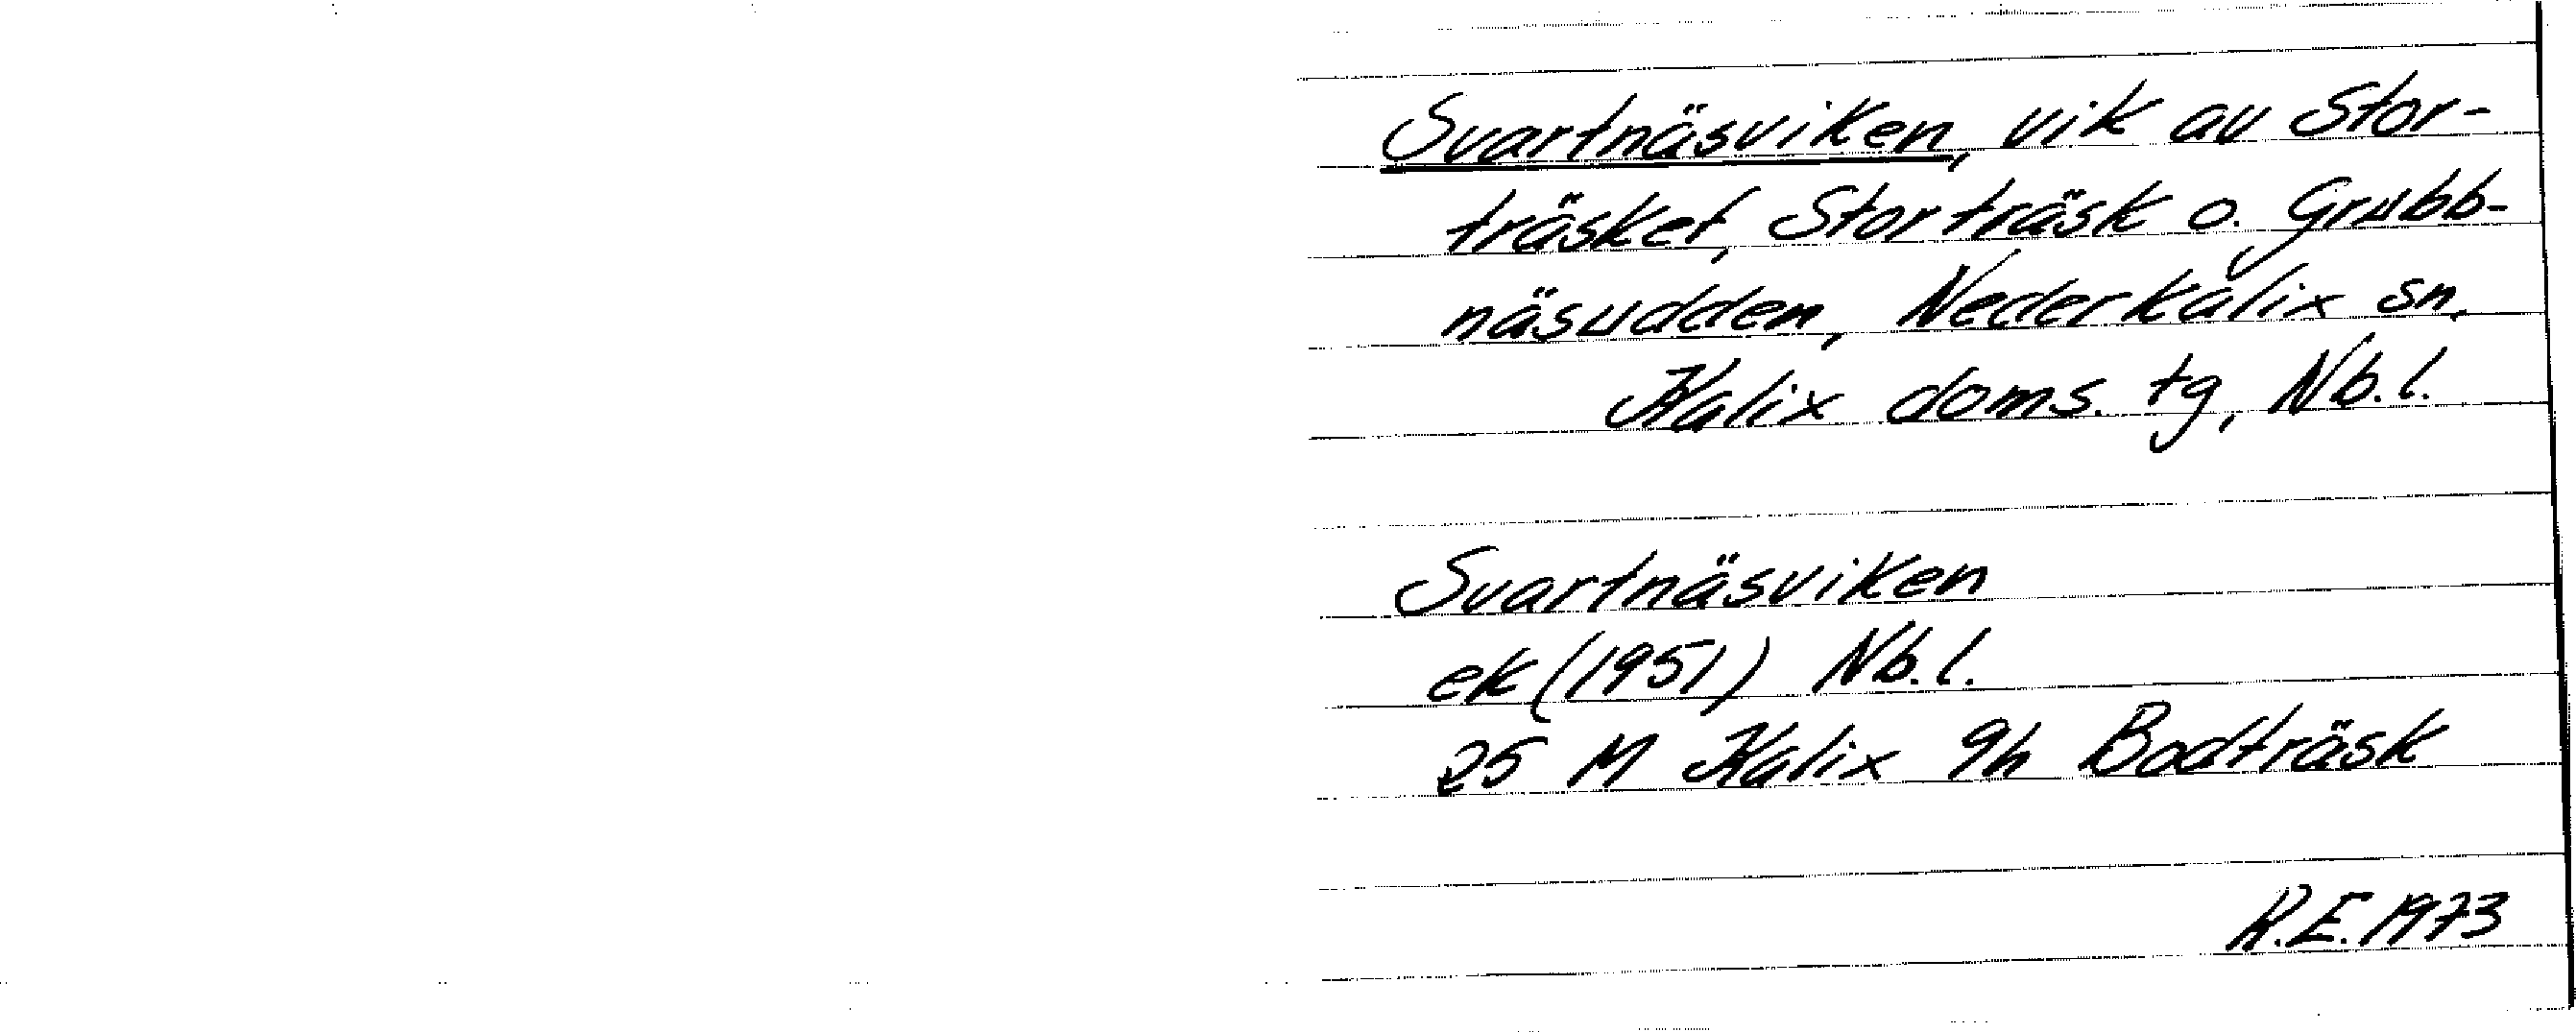 Svartnäsviken, vik av Stor-
träsket, Storträsk o. Grubb-
näsudden, Nederkalix sn.
Kalix doms. tg, Nb.l.
Svartnäsviken
ek (1951) Nb.l.
25 M Kalix 9h Bodträsk
R.E. 1973